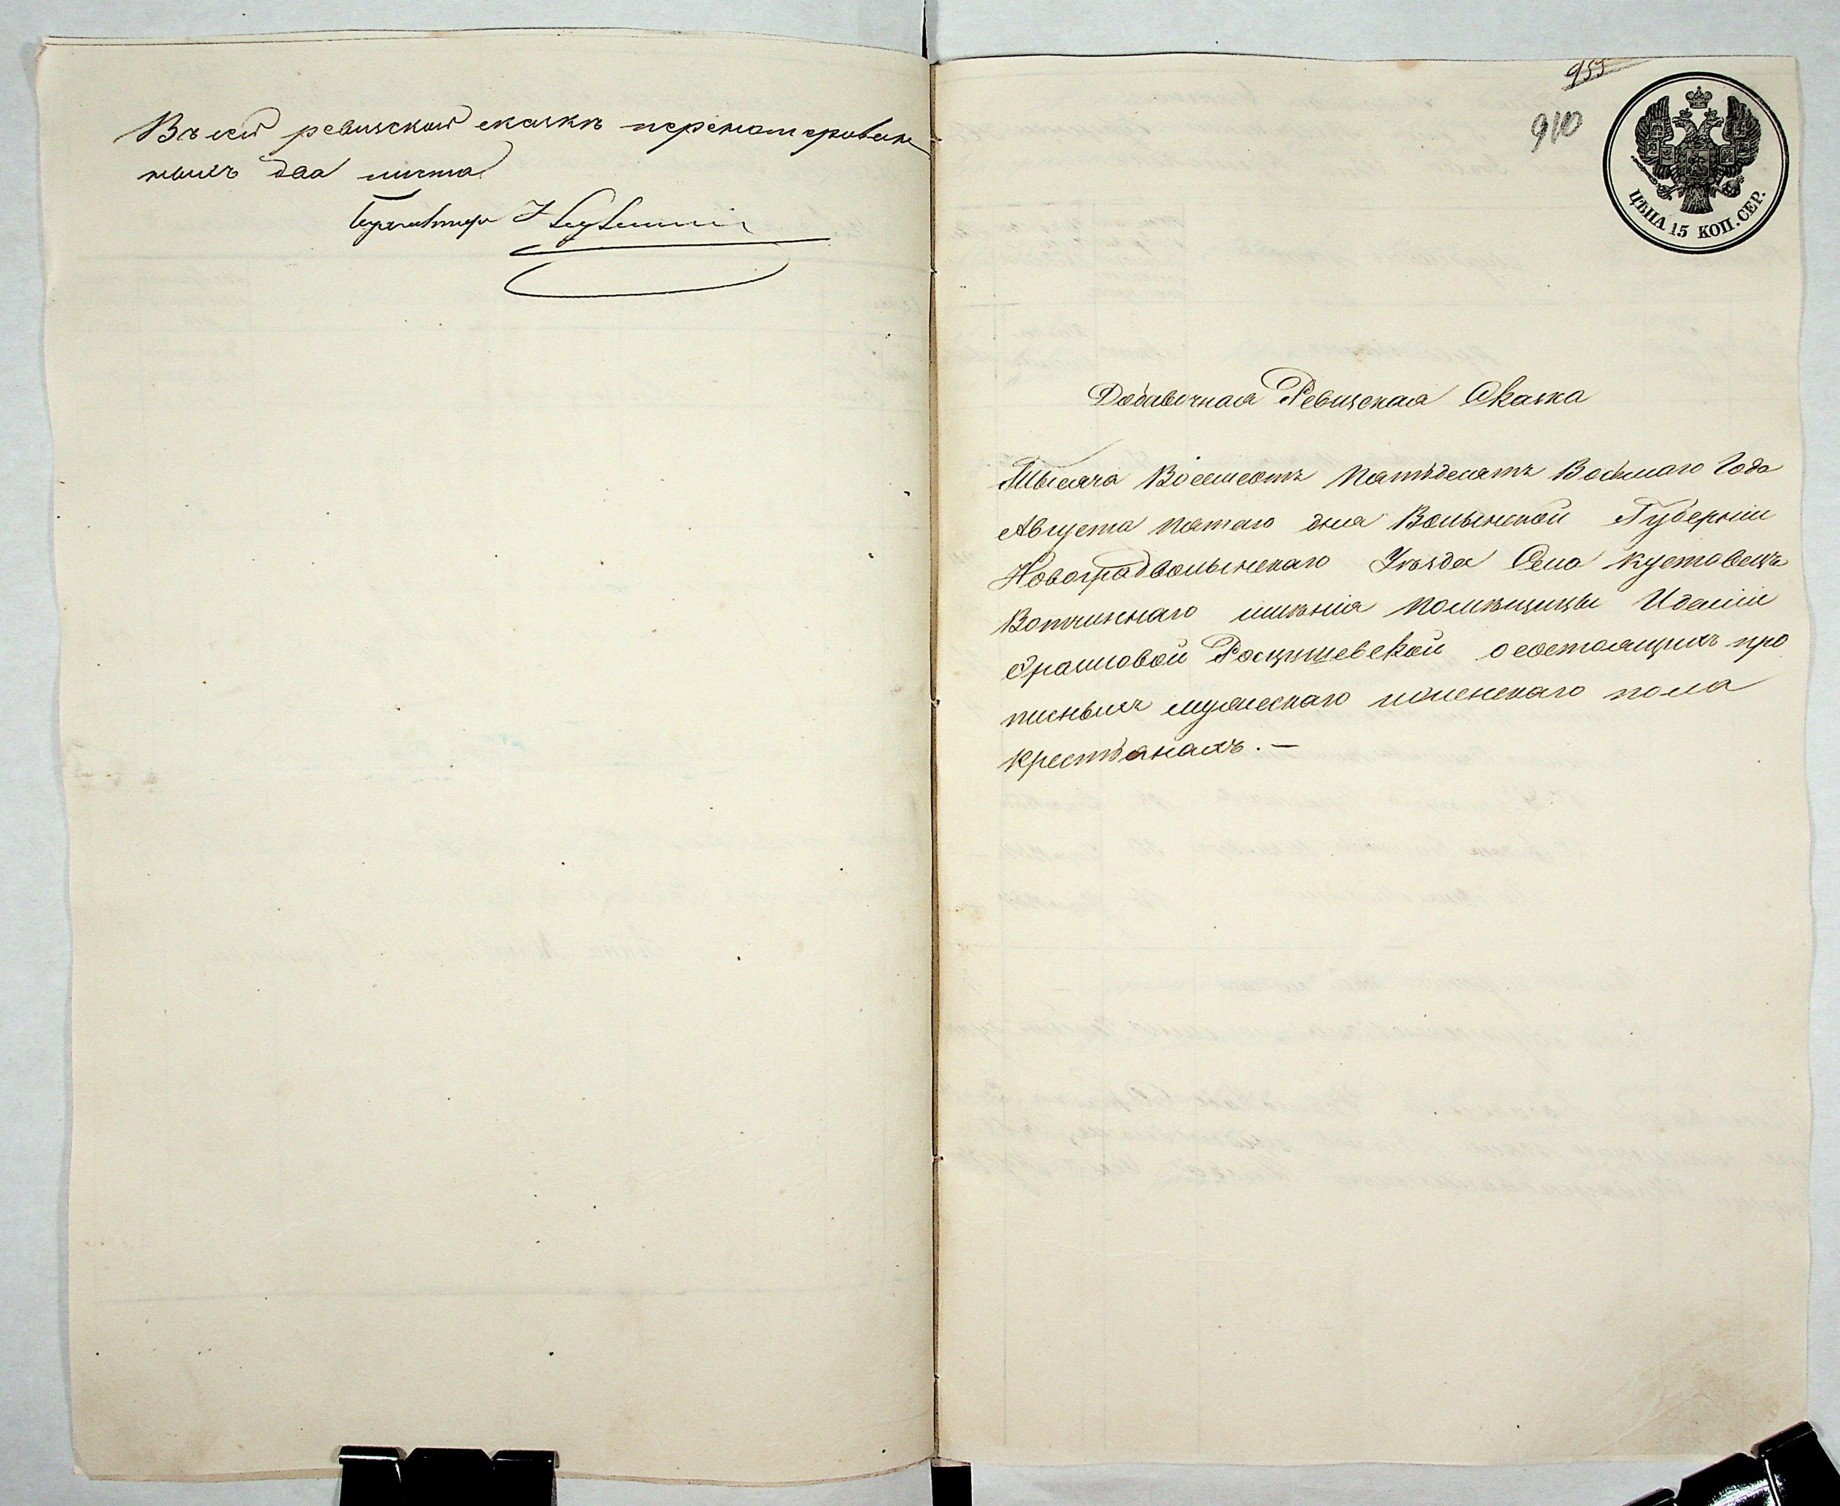 Въ сей ревизской сказкѣ перенумерован
ныхъ два листа
955
910
ЦѢНА 15 КОП. СЕР.
Добавочная Ревизская Сказка
Тысяча Восемсотъ Пятьдесятъ Восьмаго Года
Августа пятаго дня Волынской Губерніи
Новоградволынскаго Уѣзда Село Кустовецъ
Вотчиннаго имѣнія Помѣщицы Идаліи
Росцишевской о состоящихъ про
писныхъ мужескаго иженскаго пола
крестьянахъ. —